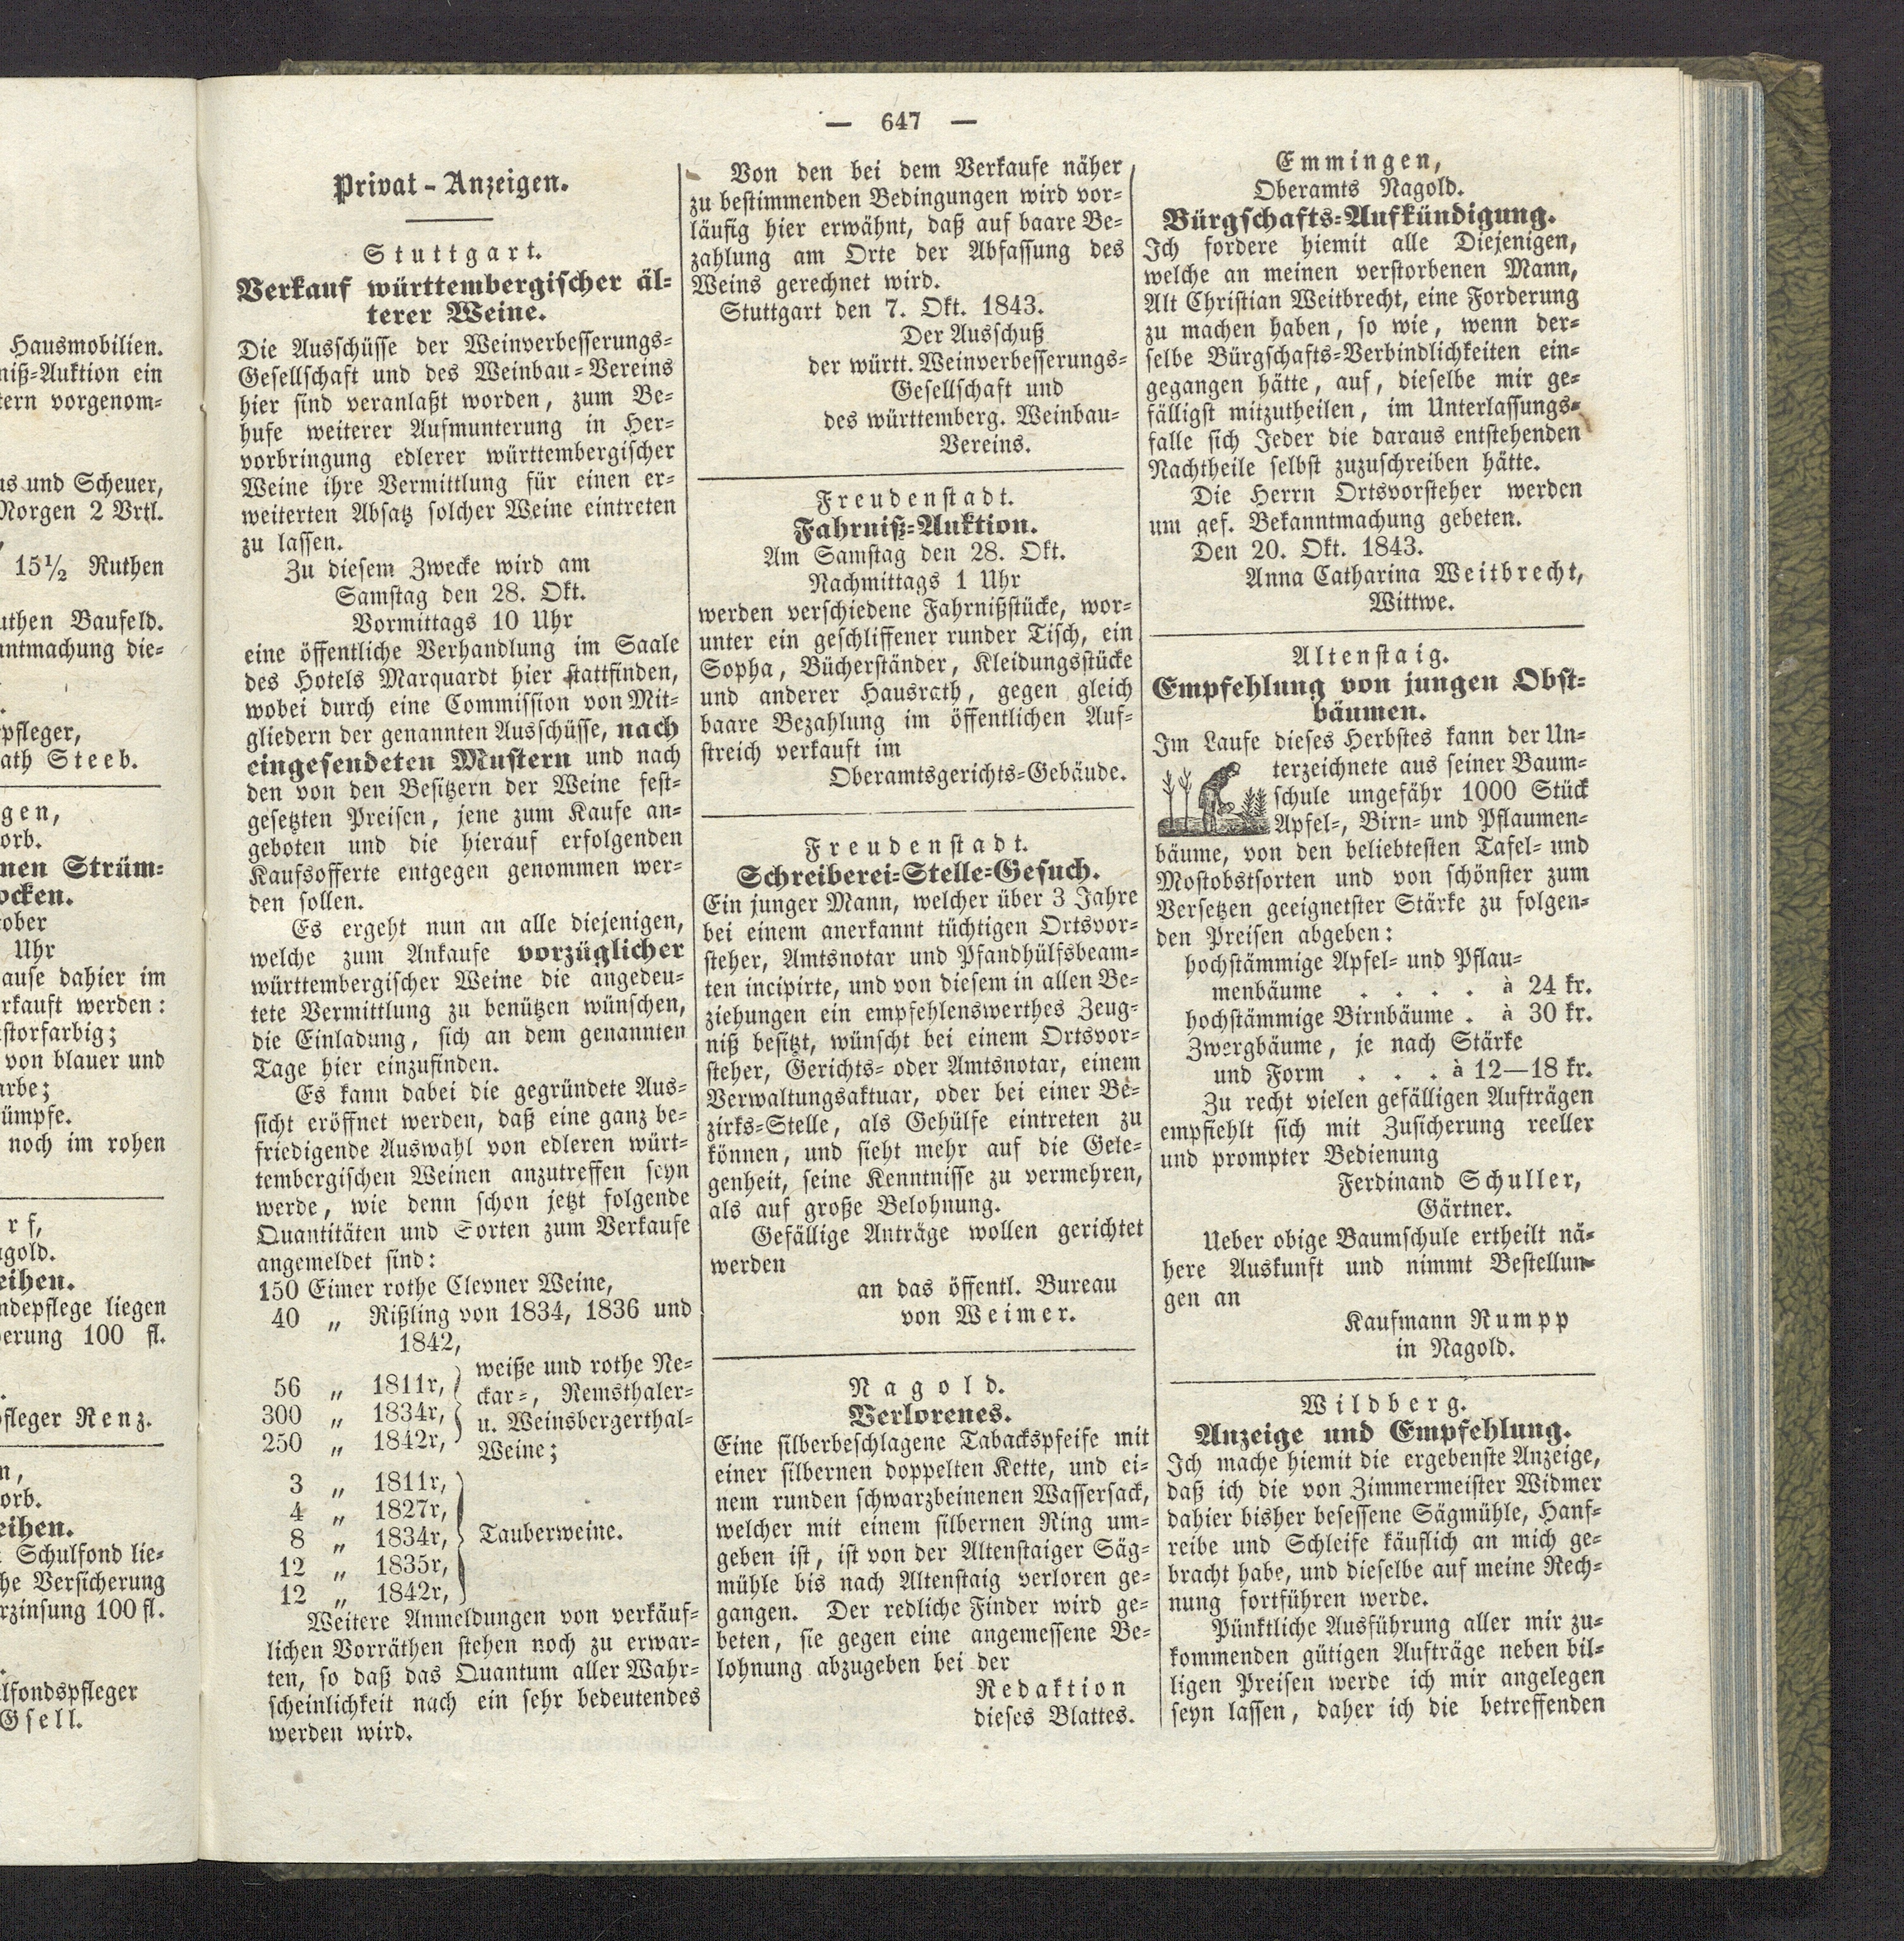 Hausmobilien.
niß-Auktion ein
tern vorgenom-
us und Scheuer,
Morgen 2 Vrtl.
15½ Ruthen
uthen Baufeld.
nntmachung die-
pfleger,
ath Steeb.
gen,
orb.
nen Strüm-
ocken.
tober
Uhr
ause dahier im
rkauft werden:
storfarbig;
von blauer und
arbe;
ümpfe.
noch im rohen
rf,
agold.
eihen.
ndepflege liegen
erung 100 fl.
pfleger Renz.
n,
orb.
eihen.
Schulfond lie-
he Versicherung
rzinsung 100 fl.
lfondspfleger
Gsell.
— 647 —
Privat-Anzeigen.
Stuttgart.
Verkauf württembergischer äl-
terer Weine.
Die Ausschüsse der Weinverbesserungs-
Gesellschaft und des Weinbau-Vereins
hier sind veranlaßt worden, zum Be-
hufe weiterer Aufmunterung in Her-
vorbringung edlerer württembergischer
Weine ihre Vermittlung für einen er-
weiterten Absatz solcher Weine eintreten
zu lassen.
Zu diesem Zwecke wird am
Samstag den 28. Okt.
Vormittags 10 Uhr
eine öffentliche Verhandlung im Saale
des Hotels Marquardt hier stattfinden,
wobei durch eine Commission von Mit-
gliedern der genannten Ausschüsse, nach
eingesendeten Mustern und nach
den von den Besitzern der Weine fest-
gesetzten Preisen, jene zum Kaufe an-
geboten und die hierauf erfolgenden
Kaufsofferte entgegen genommen wer-
den sollen.
Es ergeht nun an alle diejenigen,
welche zum Ankaufe vorzüglicher
württembergischer Weine die angedeu-
tete Vermittlung zu benützen wünschen,
die Einladung, sich an dem genannten
Tage hier einzufinden.
Es kann dabei die gegründete Aus-
sicht eröffnet werden, daß eine ganz be-
friedigende Auswahl von edleren würt-
tembergischen Weinen anzutreffen seyn
werde, wie denn schon jetzt folgende
Quantitäten und Sorten zum Verkaufe
angemeldet sind:
150 Eimer rothe Clevner Weine,
40 „ Rißling von 1834, 1836 und
1842,
56 „ 1811r,
300 „ 1834r,
250 „ 1842r,
weiße und rothe Ne-
ckar-, Remsthaler-
u. Weinsbergerthal-
Weine;
3 „ 1811r,
4 „ 1827r,
8 „ 1834r, Tauberweine.
12 „ 1835r,
12 „ 1842r,
Weitere Anmeldungen von verkäuf-
lichen Vorräthen stehen noch zu erwar-
ten, so daß das Quantum aller Wahr-
scheinlichkeit nach ein sehr bedeutendes
werden wird.
Von den bei dem Verkaufe näher
zu bestimmenden Bedingungen wird vor-
läufig hier erwähnt, daß auf baare Be-
zahlung am Orte der Abfassung des
Weins gerechnet wird.
Stuttgart den 7. Okt. 1843.
Der Ausschuß
der württ. Weinverbesserungs-
Gesellschaft und
des württemberg. Weinbau-
Vereins.
Freudenstadt.
Fahrniß-Auktion.
Am Samstag den 28. Okt.
Nachmittags 1 Uhr
werden verschiedene Fahrnißstücke, wor-
unter ein geschliffener runder Tisch, ein
Sopha, Bücherständer, Kleidungsstücke
und anderer Hausrath, gegen gleich
baare Bezahlung im öffentlichen Auf-
streich verkauft im
Oberamtsgerichts-Gebäude.
Freudenstadt.
Schreiberei-Stelle-Gesuch.
Ein junger Mann, welcher über 3 Jahre
bei einem anerkannt tüchtigen Ortsvor-
steher, Amtsnotar und Pfandhülfsbeam-
ten incipirte, und von diesem in allen Be-
ziehungen ein empfehlenswerthes Zeug-
niß besitzt, wünscht bei einem Ortsvor-
steher, Gerichts- oder Amtsnotar, einem
Verwaltungsaktuar, oder bei einer Be-
zirks-Stelle, als Gehülfe eintreten zu
können, und sieht mehr auf die Gele-
genheit, seine Kenntnisse zu vermehren,
als auf große Belohnung.
Gefällige Anträge wollen gerichtet
werden
an das öffentl. Bureau
von Weimer.
Nagold.
Verlorenes.
Eine silberbeschlagene Tabackspfeife mit
einer silbernen doppelten Kette, und ei-
nem runden schwarzbeinenen Wassersack,
welcher mit einem silbernen Ring um-
geben ist, ist von der Altenstaiger Säg-
mühle bis nach Altenstaig verloren ge-
gangen. Der redliche Finder wird ge-
beten, sie gegen eine angemessene Be-
lohnung abzugeben bei der
Redaktion
dieses Blattes.
Emmingen,
Oberamts Nagold.
Bürgschafts-Aufkündigung.
Ich fordere hiemit alle Diejenigen,
welche an meinen verstorbenen Mann,
Alt Christian Weitbrecht, eine Forderung
zu machen haben, so wie, wenn der-
selbe Bürgschafts-Verbindlichkeiten ein-
gegangen hätte, auf, dieselbe mir ge-
fälligst mitzutheilen, im Unterlassungs-
falle sich Jeder die daraus entstehenden
Nachtheile selbst zuzuschreiben hätte.
Die Herrn Ortsvorsteher werden
um gef. Bekanntmachung gebeten.
Den 20. Okt. 1843.
Anna Catharina Weitbrecht,
Wittwe.
Altenstaig.
Empfehlung von jungen Obst-
bäumen.
Im Laufe dieses Herbstes kann der Un-
terzeichnete aus seiner Baum-
schule ungefähr 1000 Stück
Apfel-, Birn- und Pflaumen-
bäume, von den beliebtesten Tafel- und
Mostobstsorten und von schönster zum
Versetzen geeignetster Stärke zu folgen-
den Preisen abgeben:
hochstämmige Apfel- und Pflau-
menbäume . . . . à 24 kr.
hochstämmige Birnbäume . à 30 kr.
Zwergbäume, je nach Stärke
und Form . . . à 12—18 kr.
Zu recht vielen gefälligen Aufträgen
empfiehlt sich mit Zusicherung reeller
und prompter Bedienung
Ferdinand Schuller,
Gärtner.
Ueber obige Baumschule ertheilt nä-
here Auskunft und nimmt Bestellun-
gen an
Kaufmann Rumpp
in Nagold.
Wildberg.
Anzeige und Empfehlung.
Ich mache hiemit die ergebenste Anzeige,
daß ich die von Zimmermeister Widmer
dahier bisher besessene Sägmühle, Hanf-
reibe und Schleife käuflich an mich ge-
bracht habe, und dieselbe auf meine Rech-
nung fortführen werde.
Pünktliche Ausführung aller mir zu-
kommenden gütigen Aufträge neben bil-
ligen Preisen werde ich mir angelegen
seyn lassen, daher ich die betreffenden